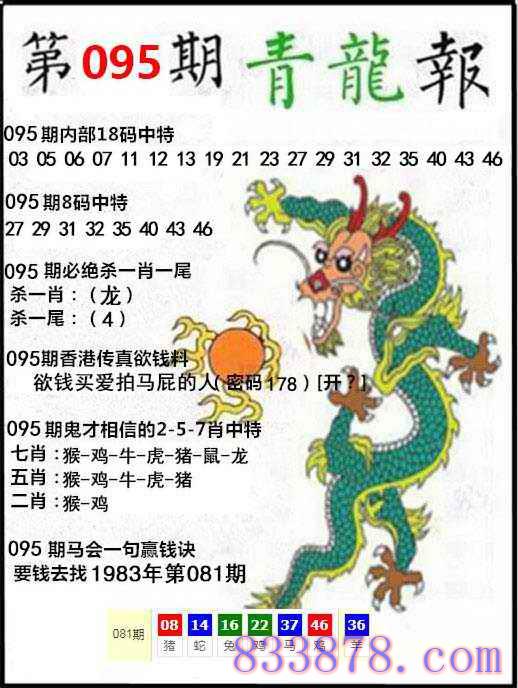 第095期 青龍報
095期内部18码中特
03 05 06 07 11 12 13 19 21 23 27 29 31 32 35 40 43 46
095期8码中特
27 29 31 32 35 40 43 46
095 期必绝杀一肖一尾
杀一肖：（龙）
杀一尾：（4）
095期香港传真欲钱料
欲钱买爱拍马屁的人（密码178）[开？]
095期鬼才相信的2-5-7肖中特
七肖：猴-鸡-牛-虎-猪-鼠-龙
五肖：猴-鸡-牛-虎-猪
二肖：猴-鸡
095期马会一句赢钱诀
要钱去找1983年第081期
081期 08 14 16 22 37 46 36
猪 蛇 兔 鸡 马 鸡 羊
833878.com